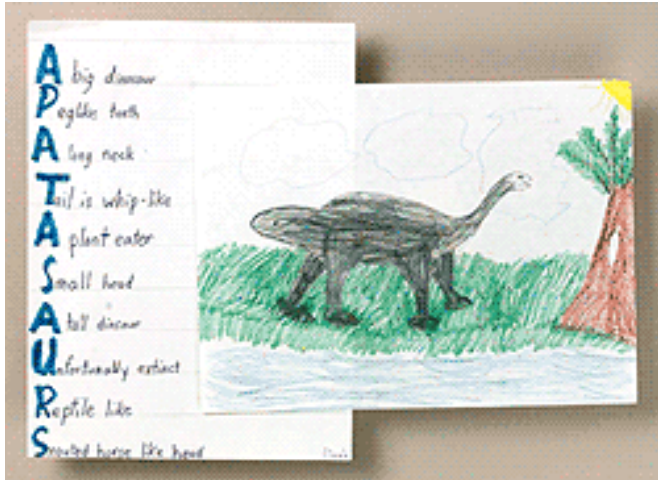 A big dinosaur
Peglike teeth
A long neck
Tail is whip-like
A plant eater
Small head
A tall dinosaur
Unfortunally extinct
Reptile like
Snouted horse like head